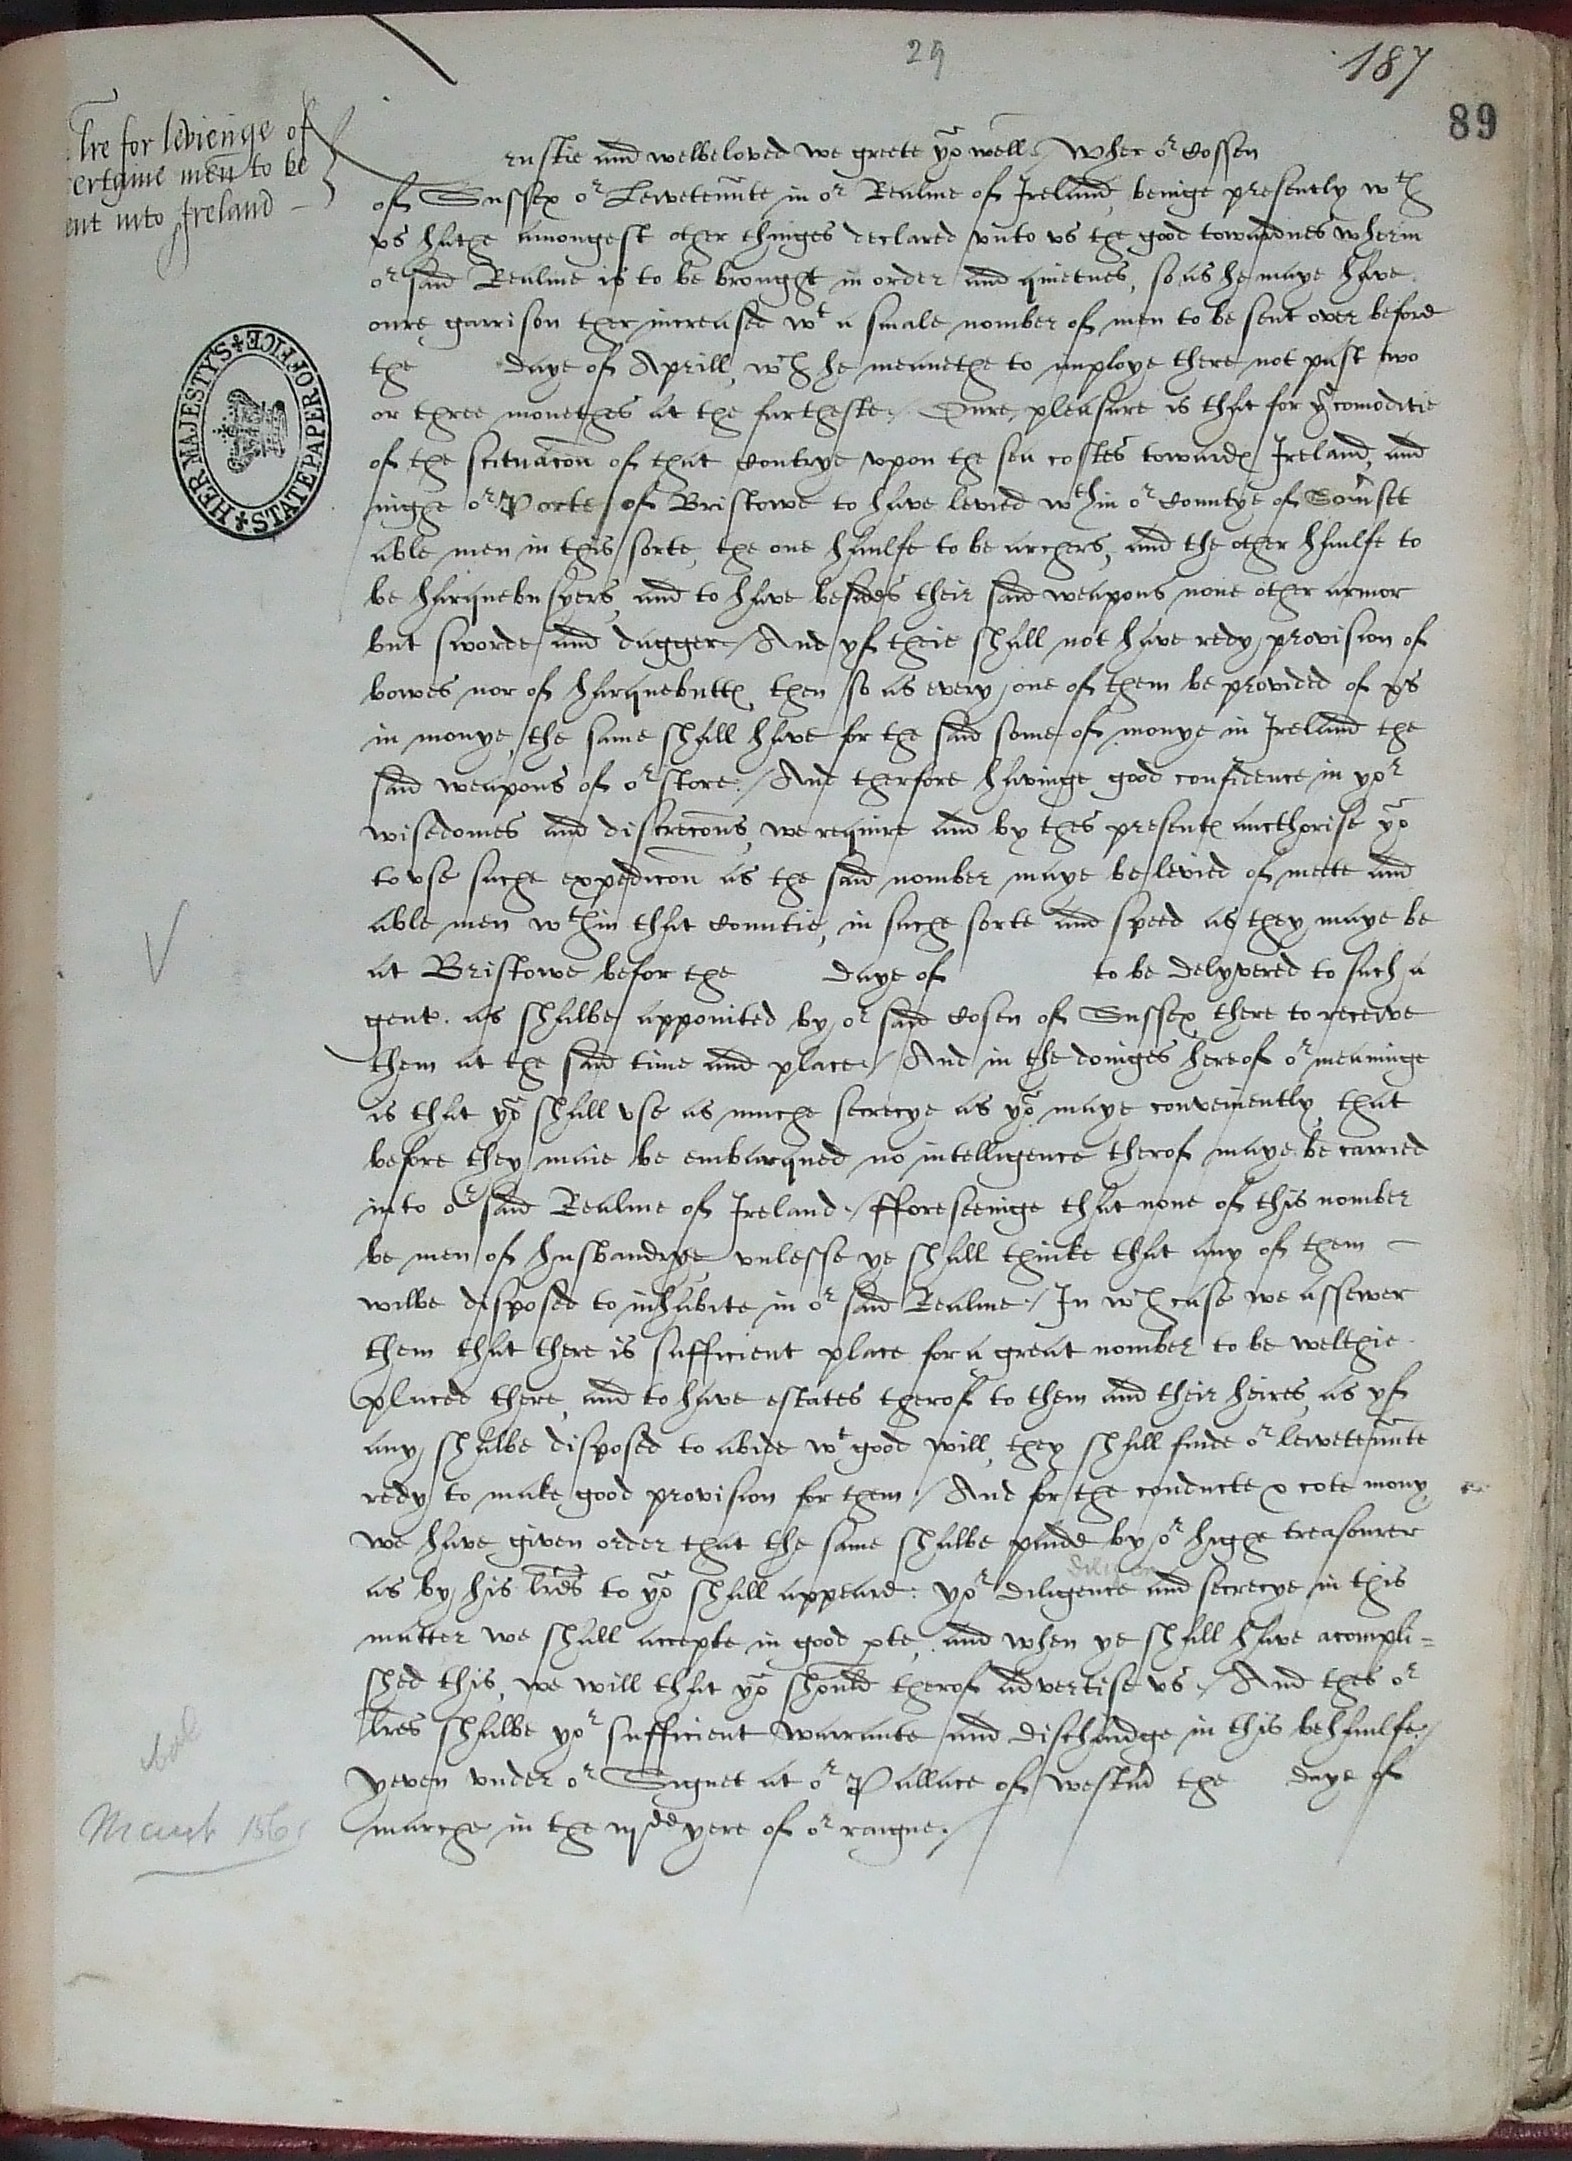 29
187
89
lre for levienge of
certayne men to be
ent into Ireland
rustie and welbeloved we greete yo well / Wher or Cossen
of Sussex or Lewetennte in or Realme of Ireland, beinge presently wth
vs hathe amongest other thinges declared vnto vs the good towardnes wherin
or said Realme is to be brought in order and quietnes, so as he maye have
oure garrison ther increased wt a smale nomber of men to be sent over before
the daye of Aprill, wch he meanethe to imploye there not past two
or three monethes at the furtheste / Oure pleasure is that for ye comoditie
of the scituacon of that Contrye vpon the sea costes towards Ireland, and
nighe or Porte of Bristowe to have levied wthin or Countye of Somset
able men in this sorte, the one haulfe to be archers, and the other haulfe to
be harquebusyers, and to have besides their said weapons none other armor
but sworde and dagger / And yf their shall not have redy provision of
bowes nor of harquebutts, then so as every one of them be provided of xs
in monye, the same shall have for the said some of monye in Ireland the
said weapons of or store / And therfore havinge good confidence in yor
wisedomes and discrecons, we require and by thes presents aucthorise yo
to vse suche expedicon as the said nomber maye be levied of meete and
able men wthin that Countie, in suche sorte and speed as they maye be
at Bristowe befor the daye of to be delyvered to such a
gent. as shalbe appointed by or said Cosen of Sussex there to receive
them at the said time and place / And in the doinges hereof or meaninge
is that yo shall vse as muche secrecye as yo maye conveniently, that
before they maie be embarqued no intelligence therof maye be carried
into or said Realme of Ireland / fforeseeinge that none of this nomber
be men of husbandrye vnlesse ye shall thinke that any of them
wilbe disposed to inhabite in or said Realme / In wch case we assewer
them that there is sufficient place for a great nomber to be welthie
placed there, and to have estates therof to them and their heires, as yf
any shalbe disposed to abide wt good will, they shall finde or lewetennte
redy to make good provision for them / And for the conducte & cote mony
we have given order that the same shalbe paide by or highe treasourer
as by his lres to yo shall appeare: yor diligence and secrecye in this
matter we shall accepte in good pte, and when ye shall have acompli=
shed this, we will that yo should therof advertise vs / And thes or
lres shalbe yor sufficient warrante and dischardge in this behaulfe /
yeven vnder or Signet at or Pallace of westm the daye of
marche in the iijde yere of or raigne /
March 1561
HER MAJESTY'S STATE PAPER OFFICE